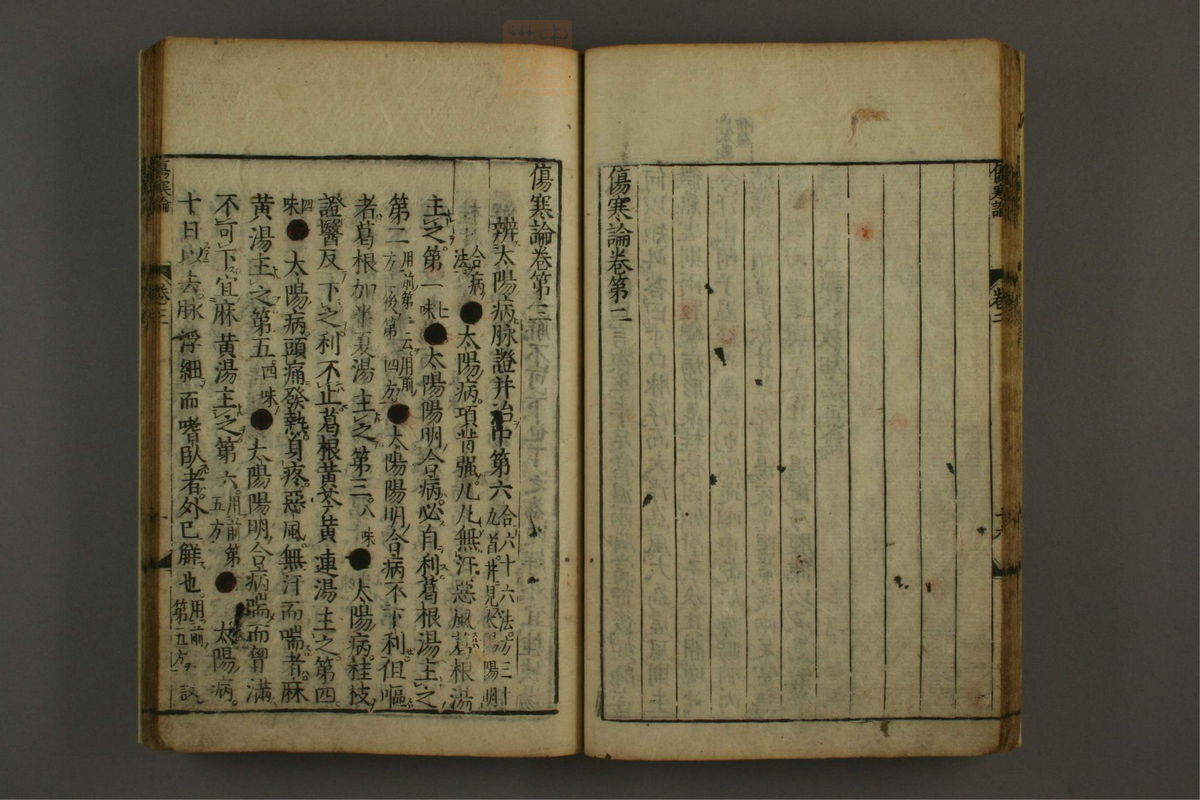 傷寒論卷第二
傷寒論卷第三
辨太陽病脉證并治中第六 合六十六法方三十
九首并見太陽陽明
合病
法 ●太陽病項背强几几無汗惡風葛根湯
主之第一 七味 ●太陽陽明合病必自利葛根湯主之
第二 用前第一方一云用前
方後第四方 ●太陽陽明合病不下利但嘔
者葛根加半夏湯主之第三 八味 ●太陽病桂枝
證醫反下之利不止葛根黃芩黃連湯主之第四
四
味 ●太陽病頭痛發熱身疼惡風無汗而喘者麻
黃湯主之第五 四味 ●太陽陽明合病喘而胷滿
不可下宜麻黃湯主之第六 用前第
五方 ●太陽病
十日以去脉浮細而嗜臥者外已解也 用前
第五方 設
傷寒論
卷三
傷寒論
卷二
十六